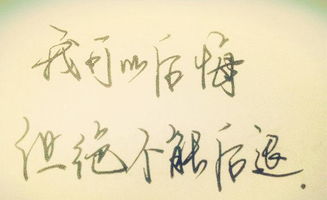 我可以后悔
但绝不能后退.